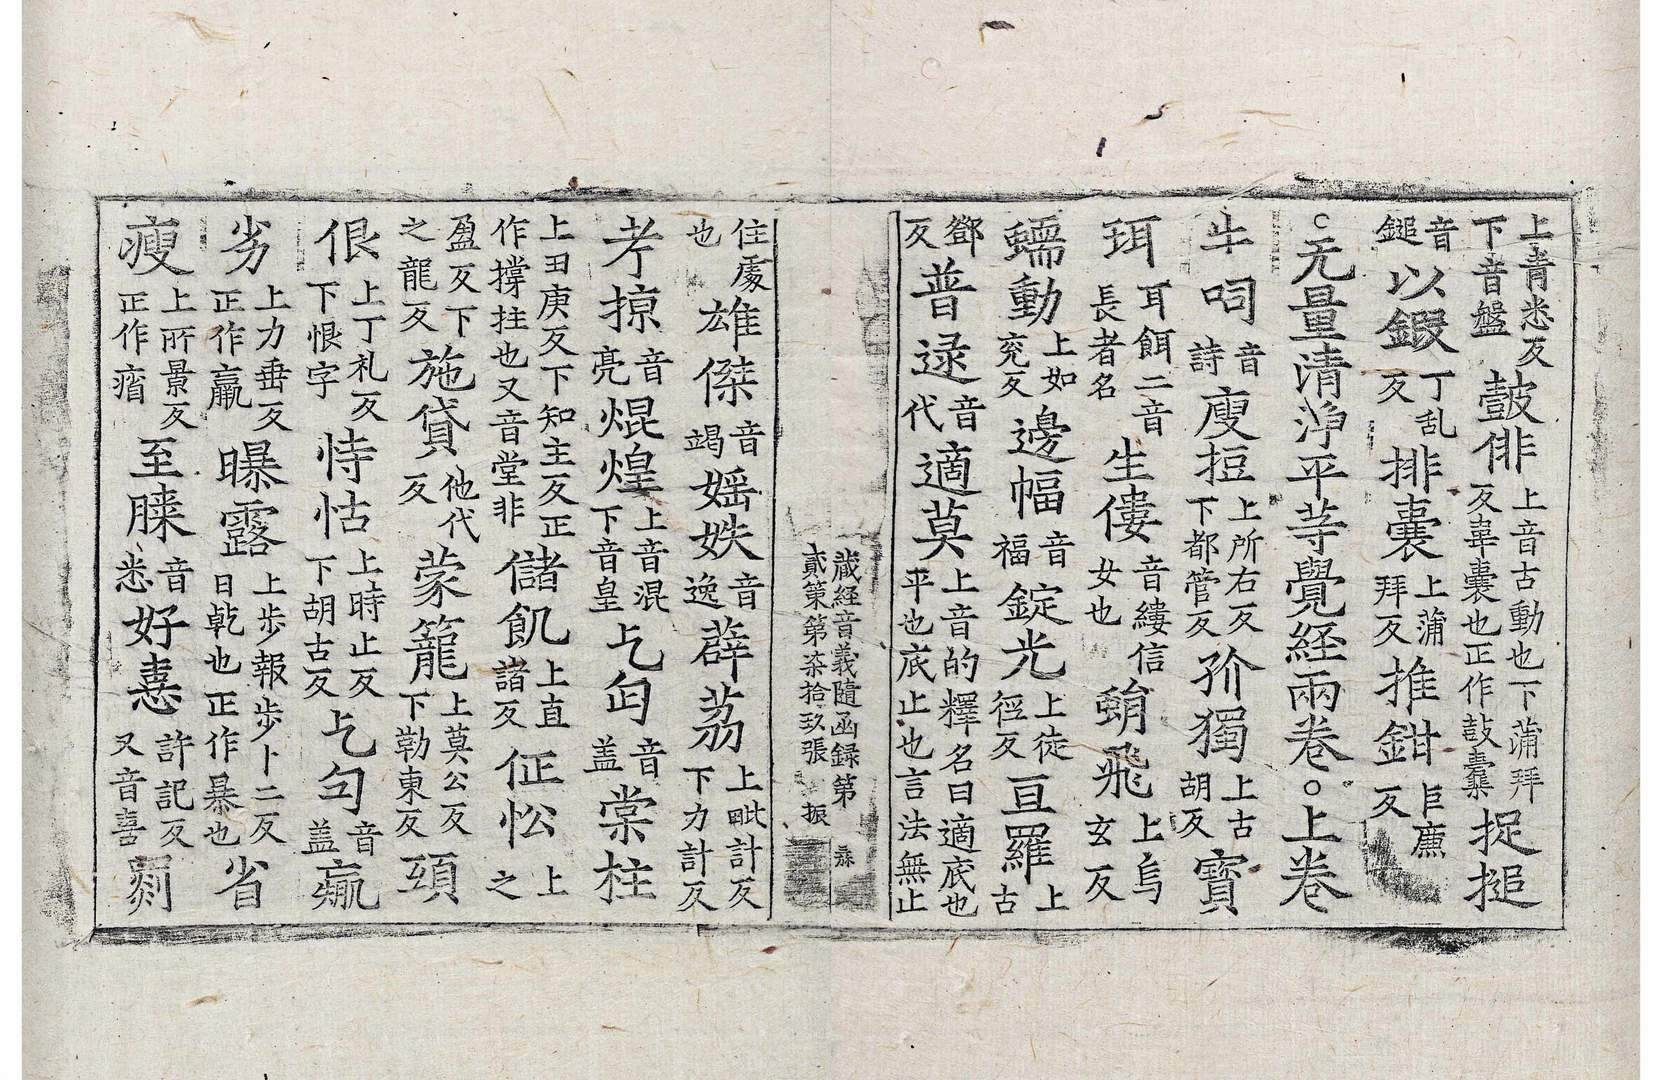 上青悉反下音盤鼓俳上音古動也下蒲拜反韋囊也正作鼓橐捉搥
音鎚以鍜丁乱反排囊上蒲拜反推鉗巨廉反
○无量清淨平䓁覺経兩卷○上卷
牛呞音詩廋挳上所右反下都管反𣦸獨上古胡反寳
珥耳餌二音長者名生僂音縷信女也蜎飛上烏玄反
蠕動上如兖反邊幅音福錠光上徒徑反亘羅上古
鄧反普逯音代適莫上音的釋名曰適底也平也底止也言法無止
藏経音義隨函録第貳第第柒拾玖張 振
住處也雄傑音竭婬妷音逸薜荔上毗計反下力計反
考掠音亮焜煌上音混下音皇乞匃音盖棠柱
上丑庚反下知主反正作撐拄也又音堂非儲飢上直諸反伀忪上之
盈反下之龍反施貸他代反蒙籠上莫公反下勒東反頑
佷上丁礼反下恨字恃怙上時止反下胡古反乞匄音盖羸
劣上力垂反正作羸曝露上歩報歩卜二反日乾也正作暴也省
瘦上所景反正作㾪至膝音悉好憙許記反又音喜罰